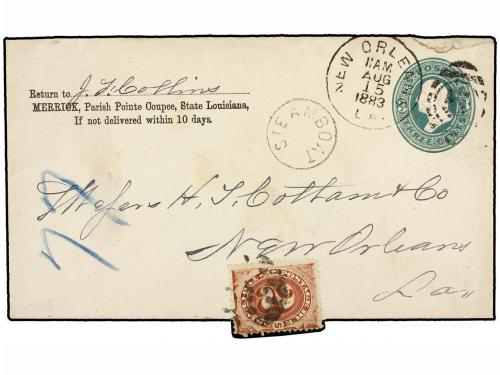 Return to J. T. Collins
MERRICK, Parish Pointe Coupee, State Louisiana,
If not delivered within 10 days.
NEW ORLEANS
11 AM
AUG
15
1883
LA.
STEAMBOAT
THREE CENTS
Messrs H. T. Cottam & Co
New Orleans
La
POSTAGE